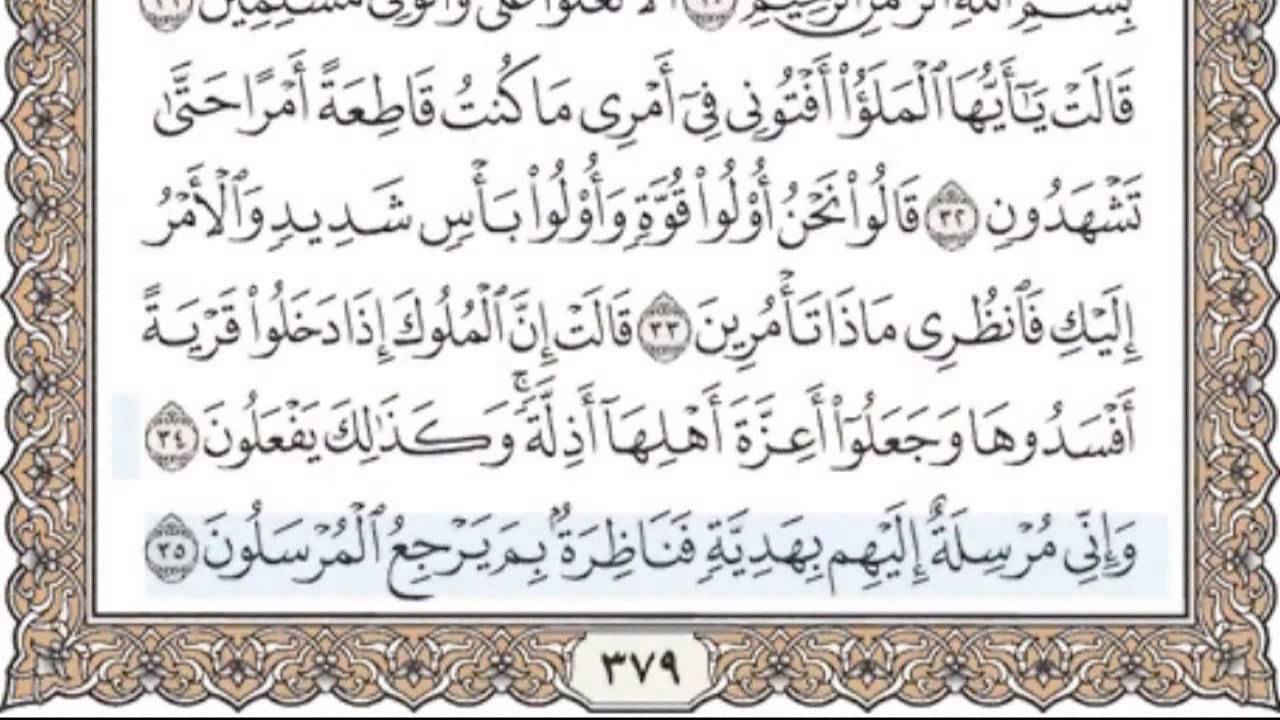 بِسْمِ ٱللَّهِ ٱلرَّحْمَٰنِ ٱلرَّحِيمِ ٣٠ أَلَّا تَعْلُوا۟ عَلَىَّ وَأْتُونِى مُسْلِمِينَ ٣١
قَالَتْ يَٰٓأَيُّهَا ٱلْمَلَؤُا۟ أَفْتُونِى فِىٓ أَمْرِى مَا كُنتُ قَاطِعَةً أَمْرًا حَتَّىٰ
تَشْهَدُونِ ٣٢ قَالُوا۟ نَحْنُ أُو۟لُوا۟ قُوَّةٍ وَأُو۟لُوا۟ بَأْسٍ شَدِيدٍ وَٱلْأَمْرُ
إِلَيْكِ فَٱنظُرِى مَاذَا تَأْمُرِينَ ٣٣ قَالَتْ إِنَّ ٱلْمُلُوكَ إِذَا دَخَلُوا۟ قَرْيَةً
أَفْسَدُوهَا وَجَعَلُوٓا۟ أَعِزَّةَ أَهْلِهَآ أَذِلَّةً ۖ وَكَذَٰلِكَ يَفْعَلُونَ ٣٤
وَإِنِّى مُرْسِلَةٌ إِلَيْهِم بِهَدِيَّةٍ فَنَاظِرَةٌۢ بِمَ يَرْجِعُ ٱلْمُرْسَلُونَ ٣٥
٣٧٩